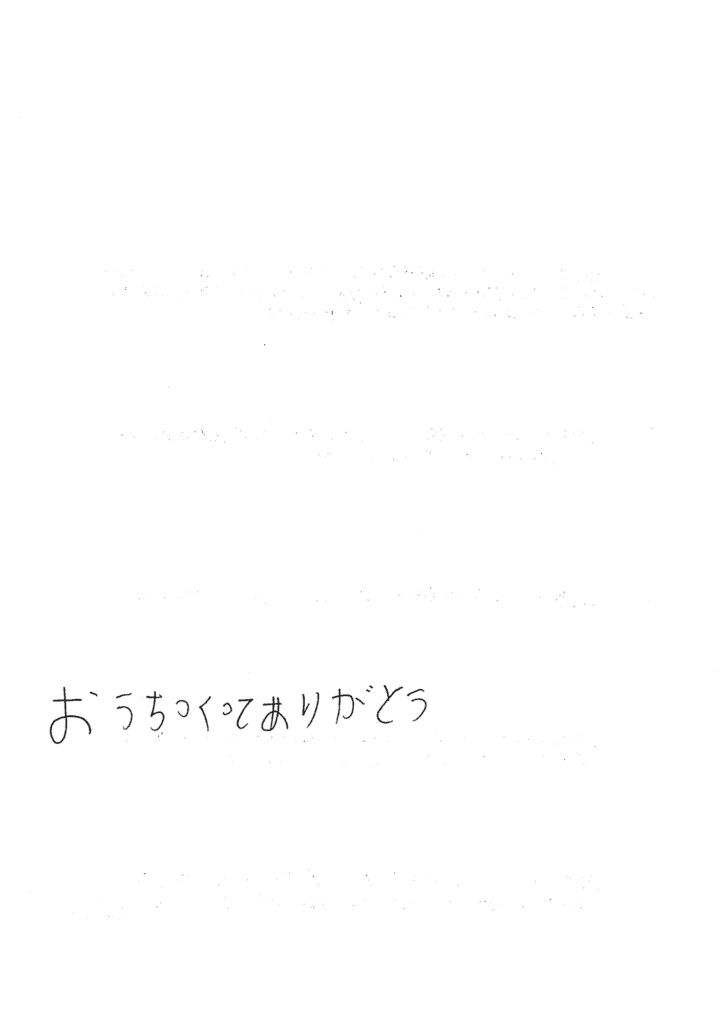 おうちつくってありがとう